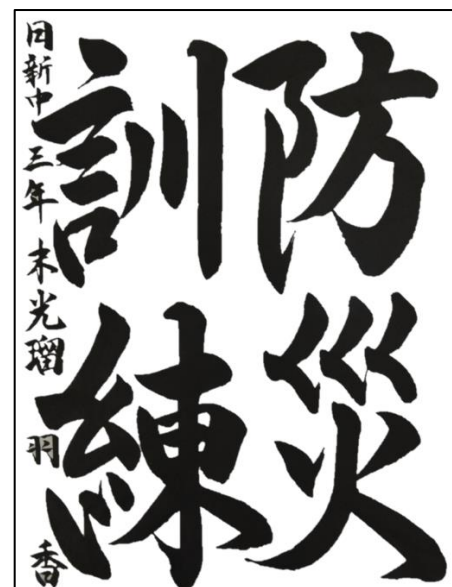 防災
訓練
日新中三年末光瑠羽香